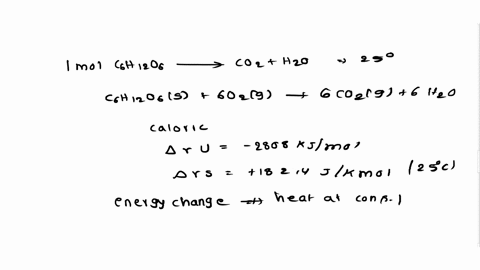 1 mol C6H12O6 ⟶ CO2 + H2O 25°
C6H12O6(s) + 6O2(g) → 6CO2(g) + 6 H2O
caloric
ΔrU = -2808 KJ/mol
Δrs = +182.4 J/Kmol (25°C)
energy change ↔ heat at con